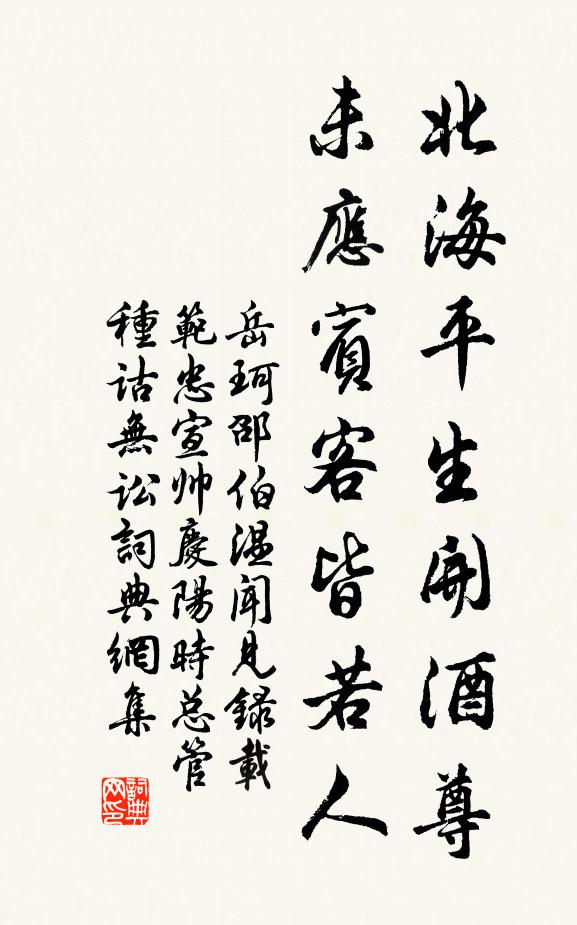 北海平生開酒尊
未應賓客皆若人
岳珂邵伯温聞見録載
範忠宣帅慶陽時总管
種詁無訟詞典網集
詞典网印